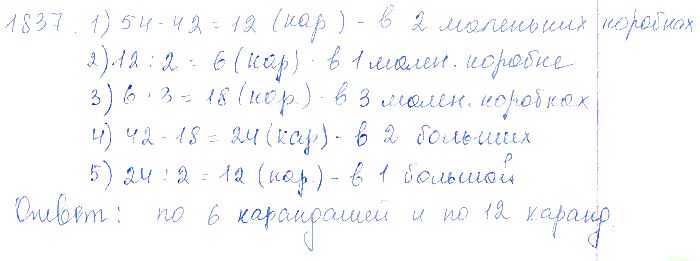 1837. 1) 54 - 42 = 12 (кар) - в 2 маленьких коробках
2) 12 : 2 = 6 (кар) - в 1 мален. коробке
3) 6 · 3 = 18 (кар.) - в 3 мален. коробках
4) 42 - 18 = 24 (кар) - в 2 больших
5) 24 : 2 = 12 (кар.) - в 1 большой
Ответ: по 6 карандашей и по 12 каранд.